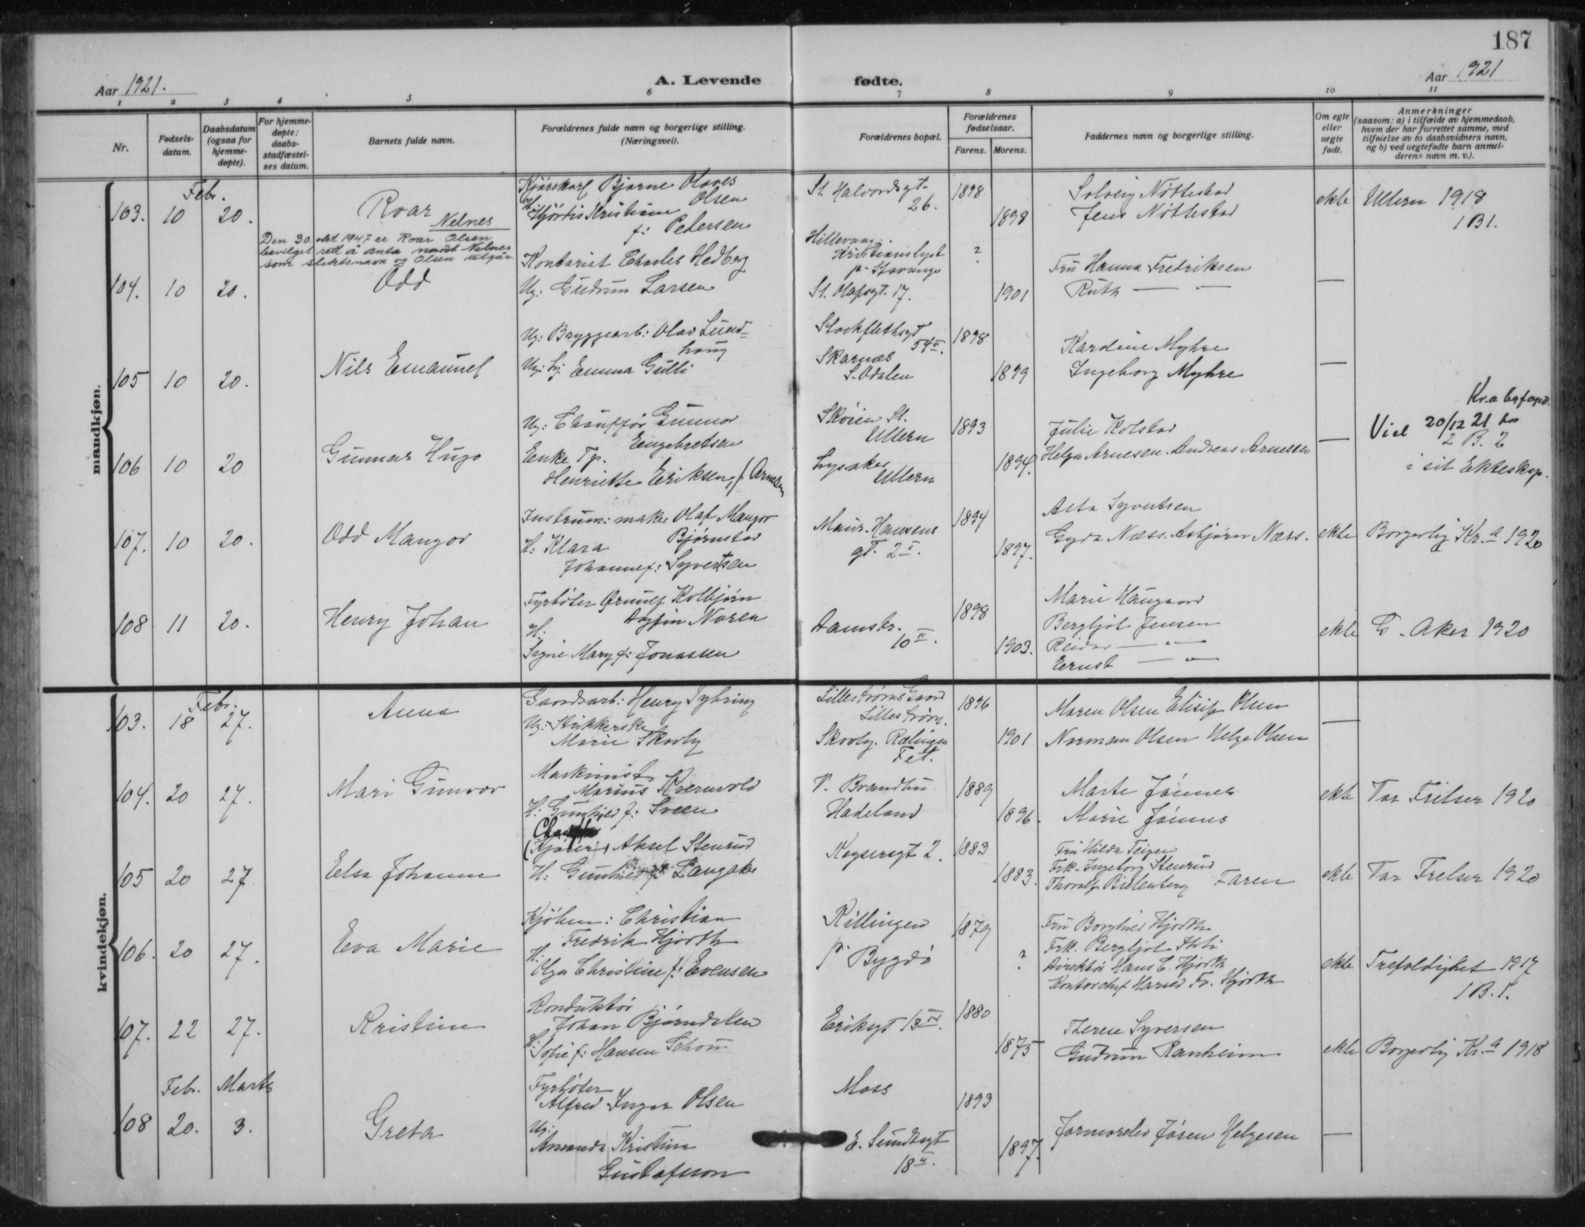 187
Aar 1921. A. Levende fødte. Aar 1921
1 2 3 4 5 6 7 8 9 10 11
Nr.
Fødsels-
datum.
Daabsdatum
(ogsaa for
hjemme-
døpte).
For hjemme-
døpte:
daabs-
stadfæstel-
ses datum.
Barnets fulde navn.
Forældrenes fulde navn og borgerlige stilling.
(Næringsvei).
Forældrenes bopæl.
Forældrenes
fødselsaar.
Farens. Morens.
Faddernes navn og borgerlige stilling.
Om egte
eller
uegte
født.
Anmerkninger
(saasom: a) i tilfælde av hjemmedaab,
hvem der har forrettet samme, med
tilføielse av to daabsvidners navn,
og b) ved uegtefødte barn anmel-
derens navn m. v.).
mandkjøn.
Febr.
103. 10 20.
Roar
Nelnes
Den 30. okt 1947 er Roar Olsen
bevilget rett å anta navnet Nelnes
som slektsnavn og Olsen utgår
Bjarne
Olsen
H: Hjördis Kristiane
f: Petersen
St. Halvordsgt.
26.
1898
1898
Solveig Nøttestad
Jens Nøttestad
ekte
Ullern 1918
1 B 1.
104. 10 20.
Odd
Kontorist Charles Hedberg
Ug: Gudrun Larsen
Kristianslyst
p. Stavanger
St. Olafsgt. 17.
?
1901
Fru Hanna Fredriksen
Ruth — " —
—
105 10 20.
Nils Emanuel
Ug: Bryggearb: Olav Lund-
haug
Ug: Emma Gulli
Stockflethsgt
54 II.
Skarnæs
S. Odalen
1898
1899
Kardine Myhre
Ingeborg Myhre
—
106 10 20
Gunnar Hugo
Ug: Chauffør Gunnar
Engebretsen
Enke Tp.
Henriette Eriksen, f. Arnesen
Skøien St.
Ullern
Lysaker
Ullern
1893
1894.
Julie Kolstad
Helga Arnesen. Andreas Arnesen
—
Kr.a byfogd.
Viel 20/12 21
2 B. 2
i sit Ekteskap.
107. 10 20.
Odd Mangor
Instrum: maker Olaf Mangor
Bjørnstad
H: Klara
Johanne f: Syvertsen
Maur. Hansens
gt. 2 I.
1894
1897.
Asta Syvertsen
Gyda Næss. Asbjørn Næss.
ekte
Borgerlig Kr.a 1920
108 11 20.
Henry Johan
Fyrbøter Ørnulf Kolbjørn
Dagfin Noren
H:
Signe Mary f: Jonassen
Damstr.
10 II.
1898
1903.
Marie Haugaard
Bergljot Jensen
Reidar — " —
Ernst — " —
ekte
G. Aker 1920
kvindekjøn.
Febr.
103. 18 27.
Anna
Gaardsarb: Henry Nybring
Ug:
Marie Skovly
Lillestrøms Gaard
Lillestrøm.
Skovly. Rælingen
Fet.
1896
1901
Maren Olsen Elisif Olsen
Norman Olsen Helge Olsen
—
104. 20 27.
Mari Gunvor
Maskinist
Marius Kvernvold
H: Gunhild f: Sveen
V. Brandbu
Hadeland
1889
1896.
Marte Jønnes
Marie Jønnes
ekte
Vor Frelser 1920
105 20 27
Elsa Johanne
(Kjører) Aksel Stenrud
H: Gunhild f: Langaker
Keysersgt 2.
1883
1883.
Fru Hilda Teigen
Frk. Ingeborg Stenrud
Thoralf Riellenberg Faren
ekte
Vor Frelser 1920
106. 20 27.
Eva Marie
Kjøbm: Christian
Fredrik Hjorth
H:
Olga Christine f: Evensen
Killingen
p. Bygdø
1879
?
Fru Borghild Hjorth
Frk. Bergljot
Direktør Hans C. Hjorth
Kontorchef Harald Fr. Hjorth
ekte
Trefoldighet 1917
1 B. 1.
107. 22 27.
Kristine
Konduktør
Johan Bjørndalen
H:
Sofie f: Hansen Schou
Eriksgt 13 IV.
1880
1875
Therese Syversen
Gudrun Ranheim
ekte
Borgerlig Kr.a 1918
Febr. Marts
108 20. 3.
Greta
Fyrbøter
Alfred Ingar Olsen
Ug:
Amanda Kristine
Gustafsson
Moss
E. Sundtsgt
18 II.
1893
1897.
Jormorelev Jøren Helgesen
—